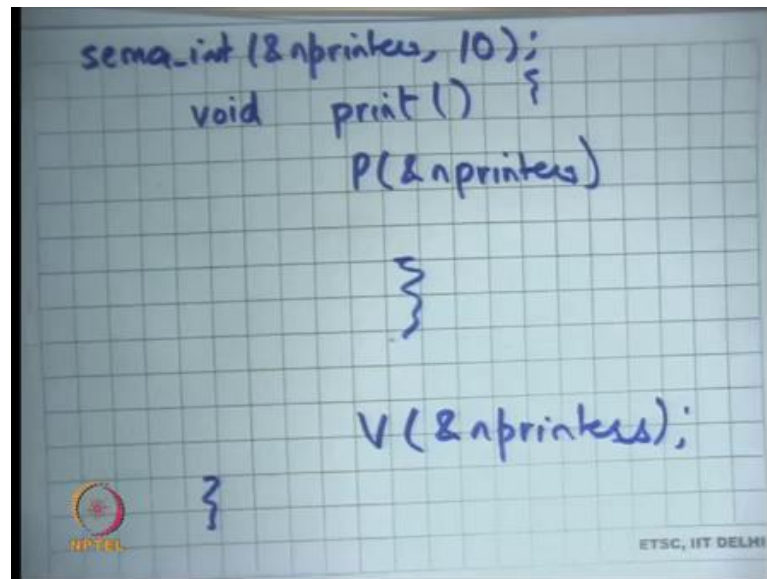 sema_init(&nprinters, 10);
void print() {
P(&nprinters)
V(&nprinters);
}
NPTEL
ETSC, IIT DELHI